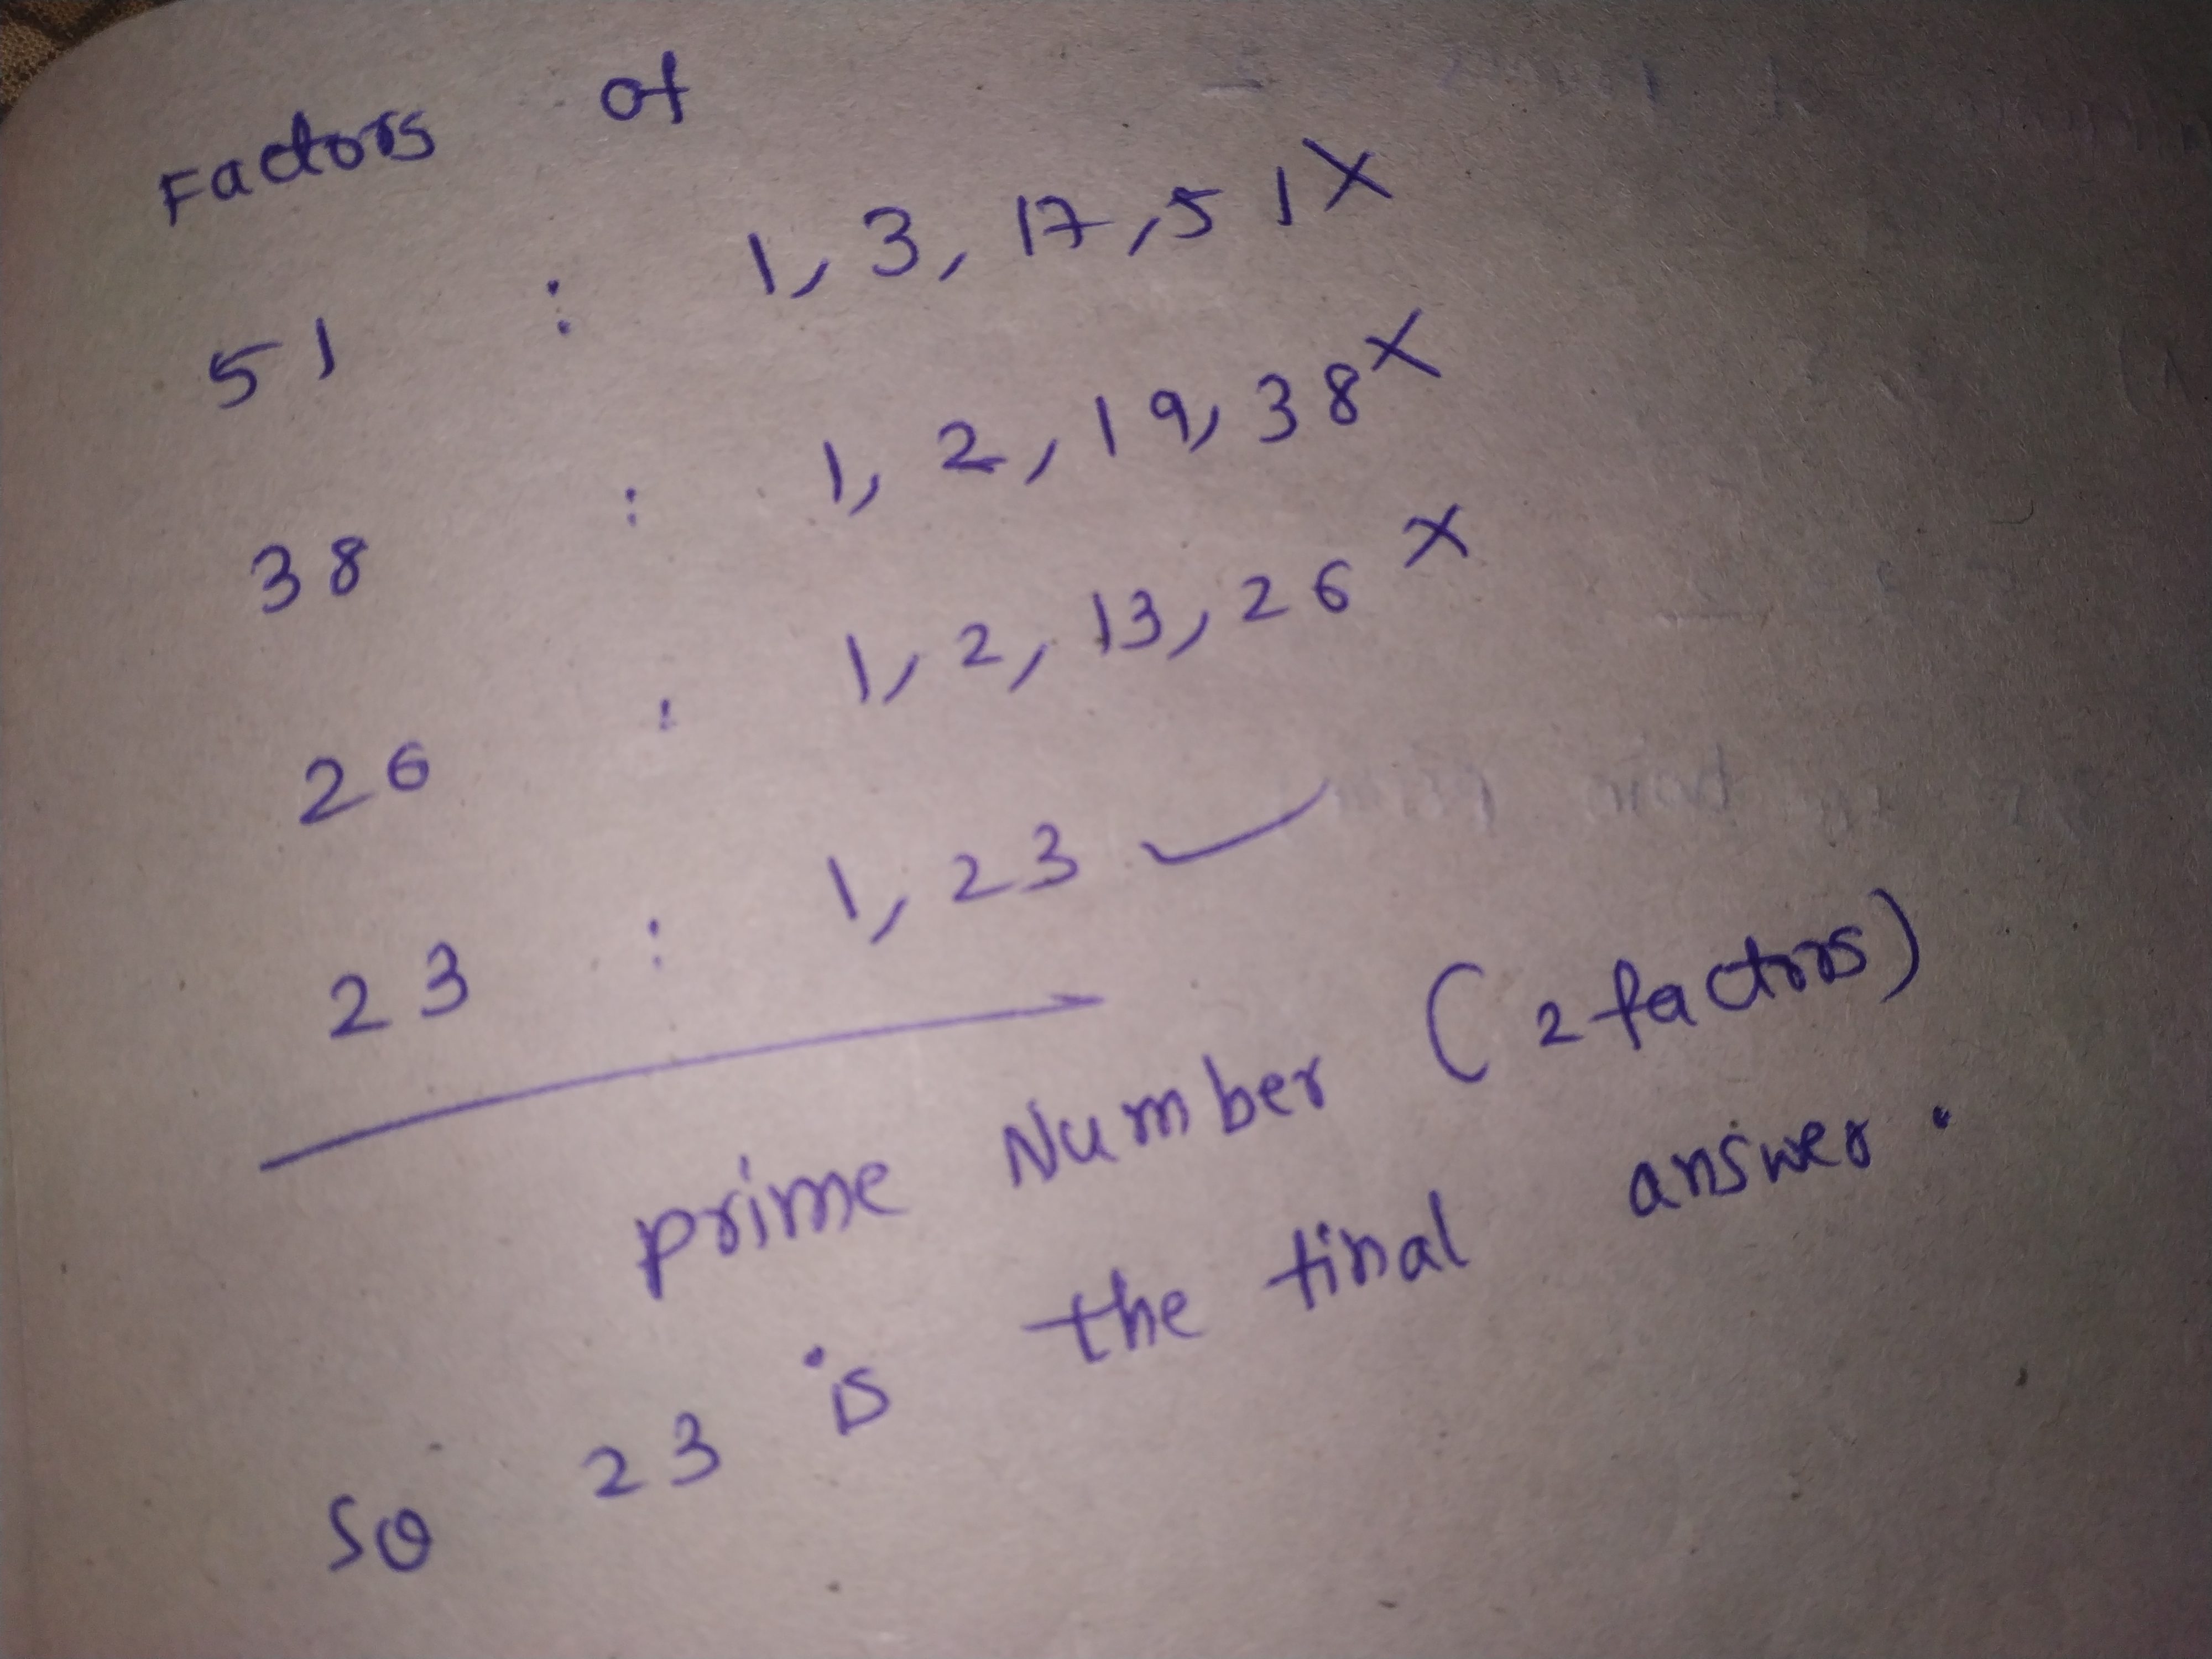 Factors of
51 : 1, 3, 17, 51 X
38 : 1, 2, 19, 38 X
26 : 1, 2, 13, 26 X
23 : 1, 23 ✓
prime Number (2 factors)
So 23 is the final answer.